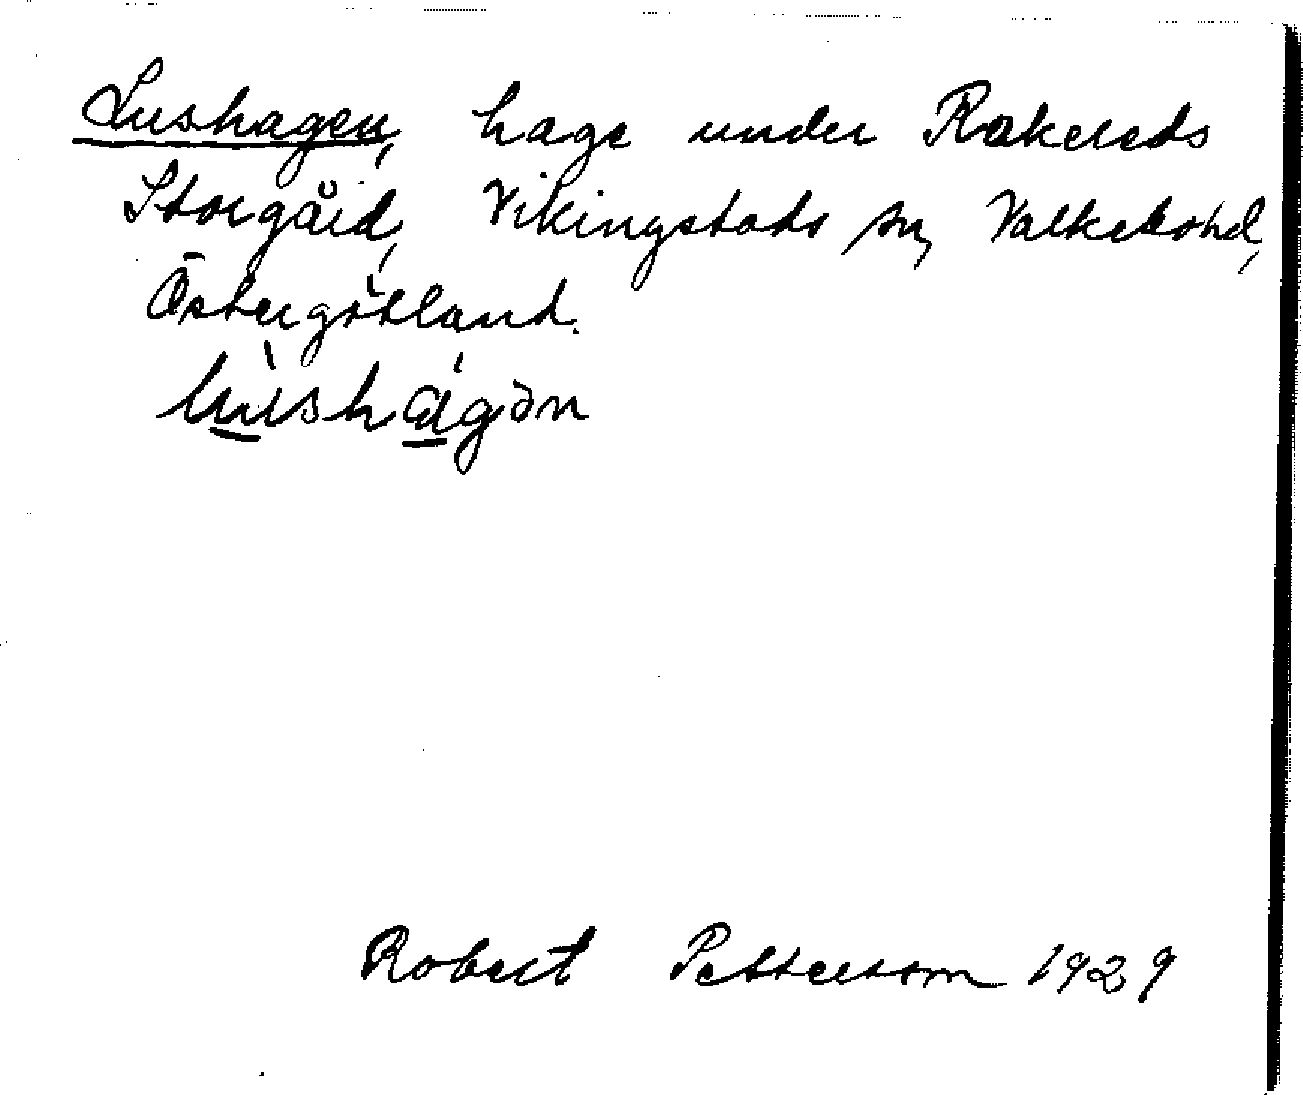 Lushagen, hage under Rakereds
Storgård, Vikingstads sn, Valkebo hd,
Östergötland.
lùshágən
Robert Pettersson 1929